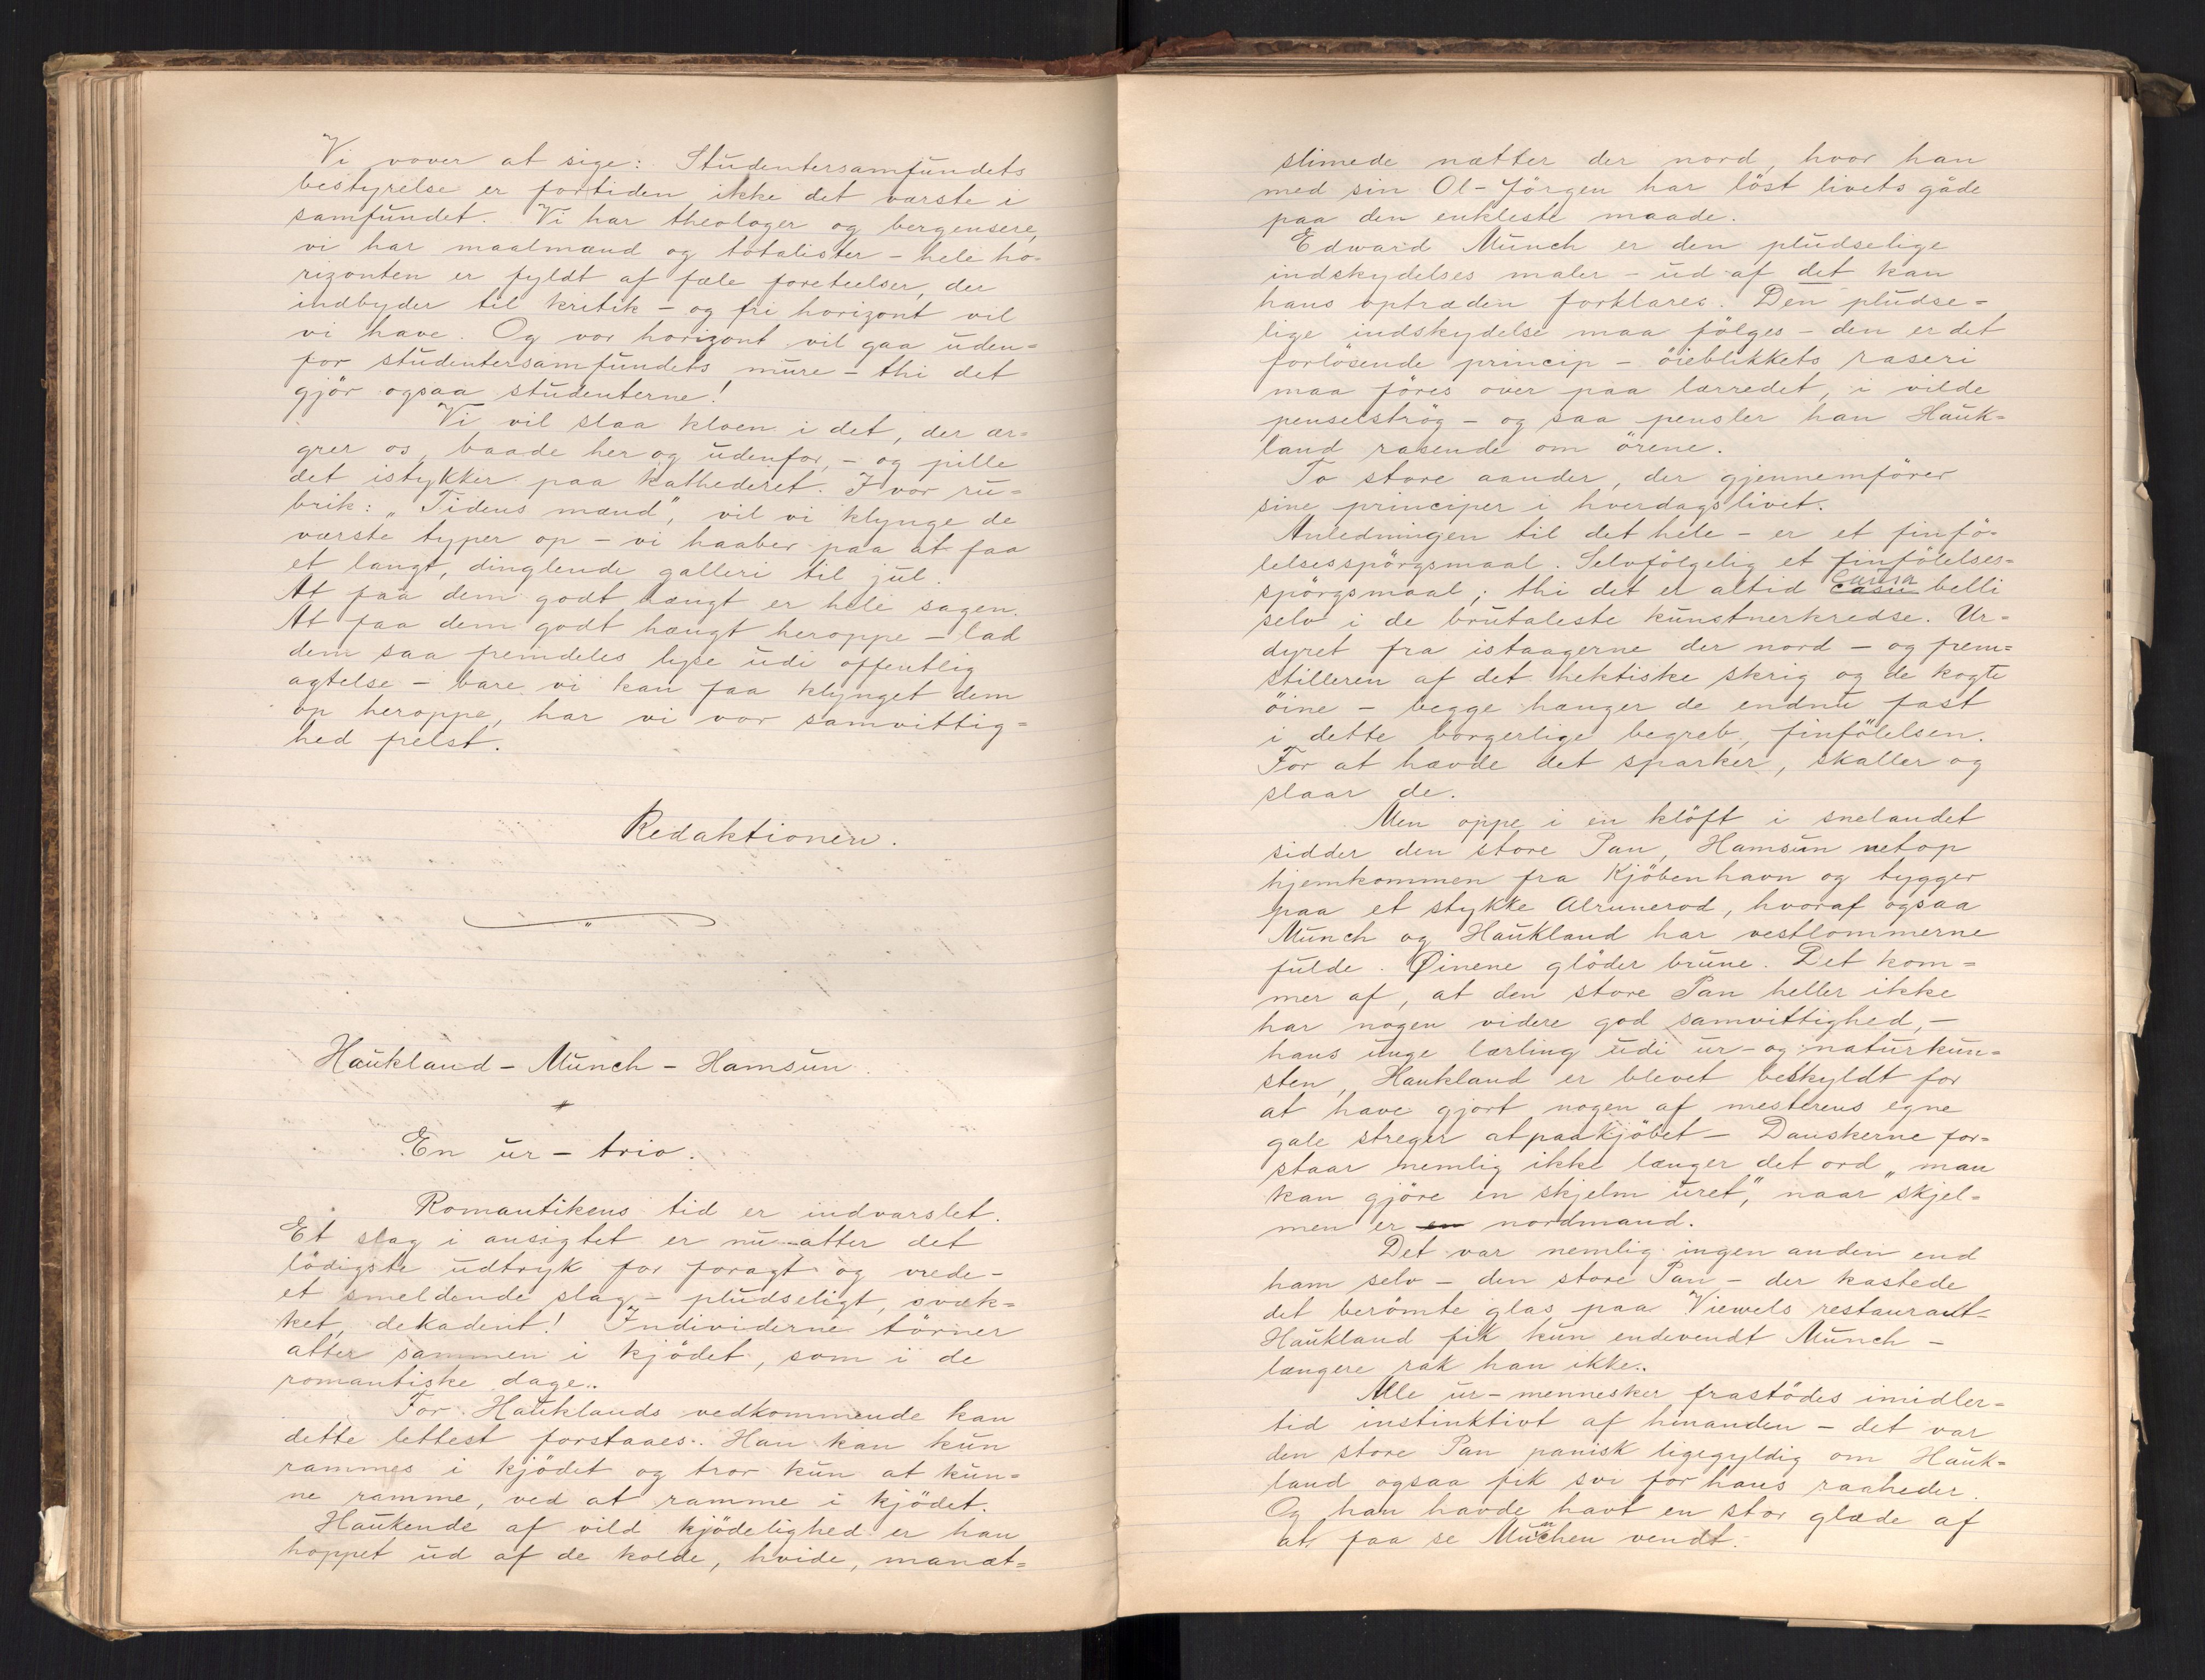 Vi vover at sige: Studentersamfundets
bestyrelse er fortiden ikke det værste i
samfundet. Vi har theologer og bergensere,
vi har maalmænd og totalister – hele ho-
rizonten er fyldt af fæle foreteelser, der
indbyder til kritik – og fri horizont vil
vi have. Og vor horizont vil gaa uden=
for studentersamfundets mure – thi det
gjør ogsaa studenterne!
Vi vil slaa kloen i det, der ær=
grer os, baade her og udenfor, – og pille
det istykker paa kathederet. I vor ru=
brik: „Tidens mænd", vil vi klynge de
værste typer op – vi haaber paa at faa
et langt, dinglende galleri til jul.
At faa dem godt hængt er hele sagen.
At faa dem godt hængt heroppe – lad
dem saa fremdeles lyse udi offentlig
agtelse – bare vi kan faa klynget dem
op heroppe, har vi vor samvittig=
hed frelst.
Redaktionen.
Haukland – Munch – Hamsun.
En ur – trio.
Romantikens tid er indvarslet.
Et slag i ansigtet er nu atter det
lödigste udtryk for foragt og vrede –
et smeldende slag – pludseligt, svæk=
ket, dekadent! Individerne törner
atter sammen i kjödet, som i de
romantiske dage..
For Hauklands vedkommende kan
dette lettest forstaaes. Han kan kun
rammes i kjödet og tror kun at kun=
ne ramme, ved at ramme i kjödet.
Haukende af vild kjödelighed er han
hoppet ud af de kolde, hvide, manæt=
slimede nætter der nord, hvor han
med sin Ol-Jörgen har löst livets gåde
paa den enkleste maade.
Edward Munch er den pludselige
indskydelses maler – ud af det kan
hans optræden forklares. Den pludse=
lige indskydelse maa fölges – den er det
forlösende princip – öieblikkets raseri
maa föres over paa lærredet, i vilde
penselströg – og saa pensler han Hauk=
land rasende om örene.
To store aander, der gjennemförer
sine principer i hverdagslivet.
Anledningen til det hele – er et finfö-
lelsesspörgsmaal. Selvfölgelig et finfölelses=
spörgsmaal; thi det er altid casu Causa belli
selv i de brutaleste kunstnerkredse. Ur=
dyret fra istaagerne der nord – og frem=
stilleren af det hektiske skrig og de kogte
öine – begge hænger de endnu fast
i dette borgerlige begreb, finfölelsen.
For at hævde det sparker, skaller og
slaar de.
Men oppe i en klöft i snelandet
sidder den store Pan, Hamsun netop
hjemkommen fra Kjöbenhavn og tygger
paa et stykke Alrunerod, hvoraf ogsaa
Munch og Haukland har vestlommerne
fulde. Øinene glöder brune. Det kom=
mer af, at den store Pan heller ikke
har nogen videre god samvittighed, –
hans unge lærling udi ur- og naturkun=
sten, Haukland er blevet beskyldt for
at have gjort nogen af mesterens egne
gale streger atpaakjöbet – Danskerne for=
staar nemlig ikke længer det ord „man
kan gjöre en skjelm uret", naar skjel=
men er en nordmand.
Det var nemlig ingen anden end
ham selv – den store Pan – der kastede
det berömte glas paa Viewels restaurant –
Haukland fik kun endevendt Munch –
længere rak han ikke..
Alle ur-mennesker frastödes imidler=
tid instinktivt af hinanden – det var
den store Pan panisk ligegyldig om Hauk=
land ogsaa fik svi for hans raaheder.
Og han havde havt en stor glæde af
at faa se Munchen vendt.